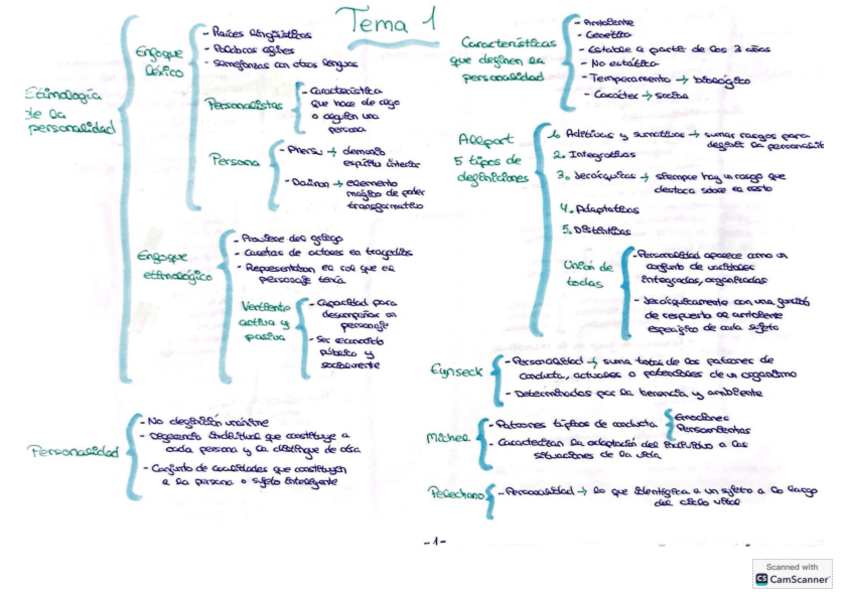 Tema 1
Etimología
de la
personalidad
Enfoque
léxico
- Raíces lingüísticas
- Palabras afines
- Semejanzas con otras lenguas
Personalistas
- Característica
que hace de algo
o alguien una
persona
Persona
- Phersu → demonio
espíritu interior
- Daimon → elemento
mágico de poder
transformativo
Enfoque
etimológico
- Proviene del griego
- Caretas de actores en tragedias
- Representaban el rol que el
personaje tenía
Vertiente
activa y
pasiva
- Capacidad para
desempeñar un
personaje
- Ser reconocido
pública y
socialmente
Personalidad
- No definición unánime
- Diferencia individual que constituye a
cada persona y la distingue de otra
- Conjunto de cualidades que constituyen
a la persona o sujeto inteligente
Características
que definen la
personalidad
- Ambiente
- Genético
- Estable a partir de los 3 años
- No estático
- Temperamento → biológico
- Carácter → social
Allport
5 tipos de
definiciones
1. Aditivas y sumativas → sumar rasgos para
definir la personalid
2. Integrativas
3. Jerárquicas → siempre hay un rasgo que
destaca sobre el resto
4. Adaptativas
5. Distintivas
Unión de
todas
- Personalidad aparece como un
conjunto de variables
integradas, organizadas
- Jerárquicamente con una
de respuesta al ambiente
específico de cada sujeto
Eynseck
- Personalidad → suma total de los patrones de
conducta, actuales o potenciales de un organismo
- Determinados por la herencia y ambiente
Michel
- Patrones típicos de conducta
Emociones
Pensamientos
- Caracterizan la adaptación del individuo a las
situaciones de la vida
Pelechano
- Personalidad → lo que identifica a un sujeto a lo largo
del ciclo vital
-1-
Scanned with
CS CamScanner